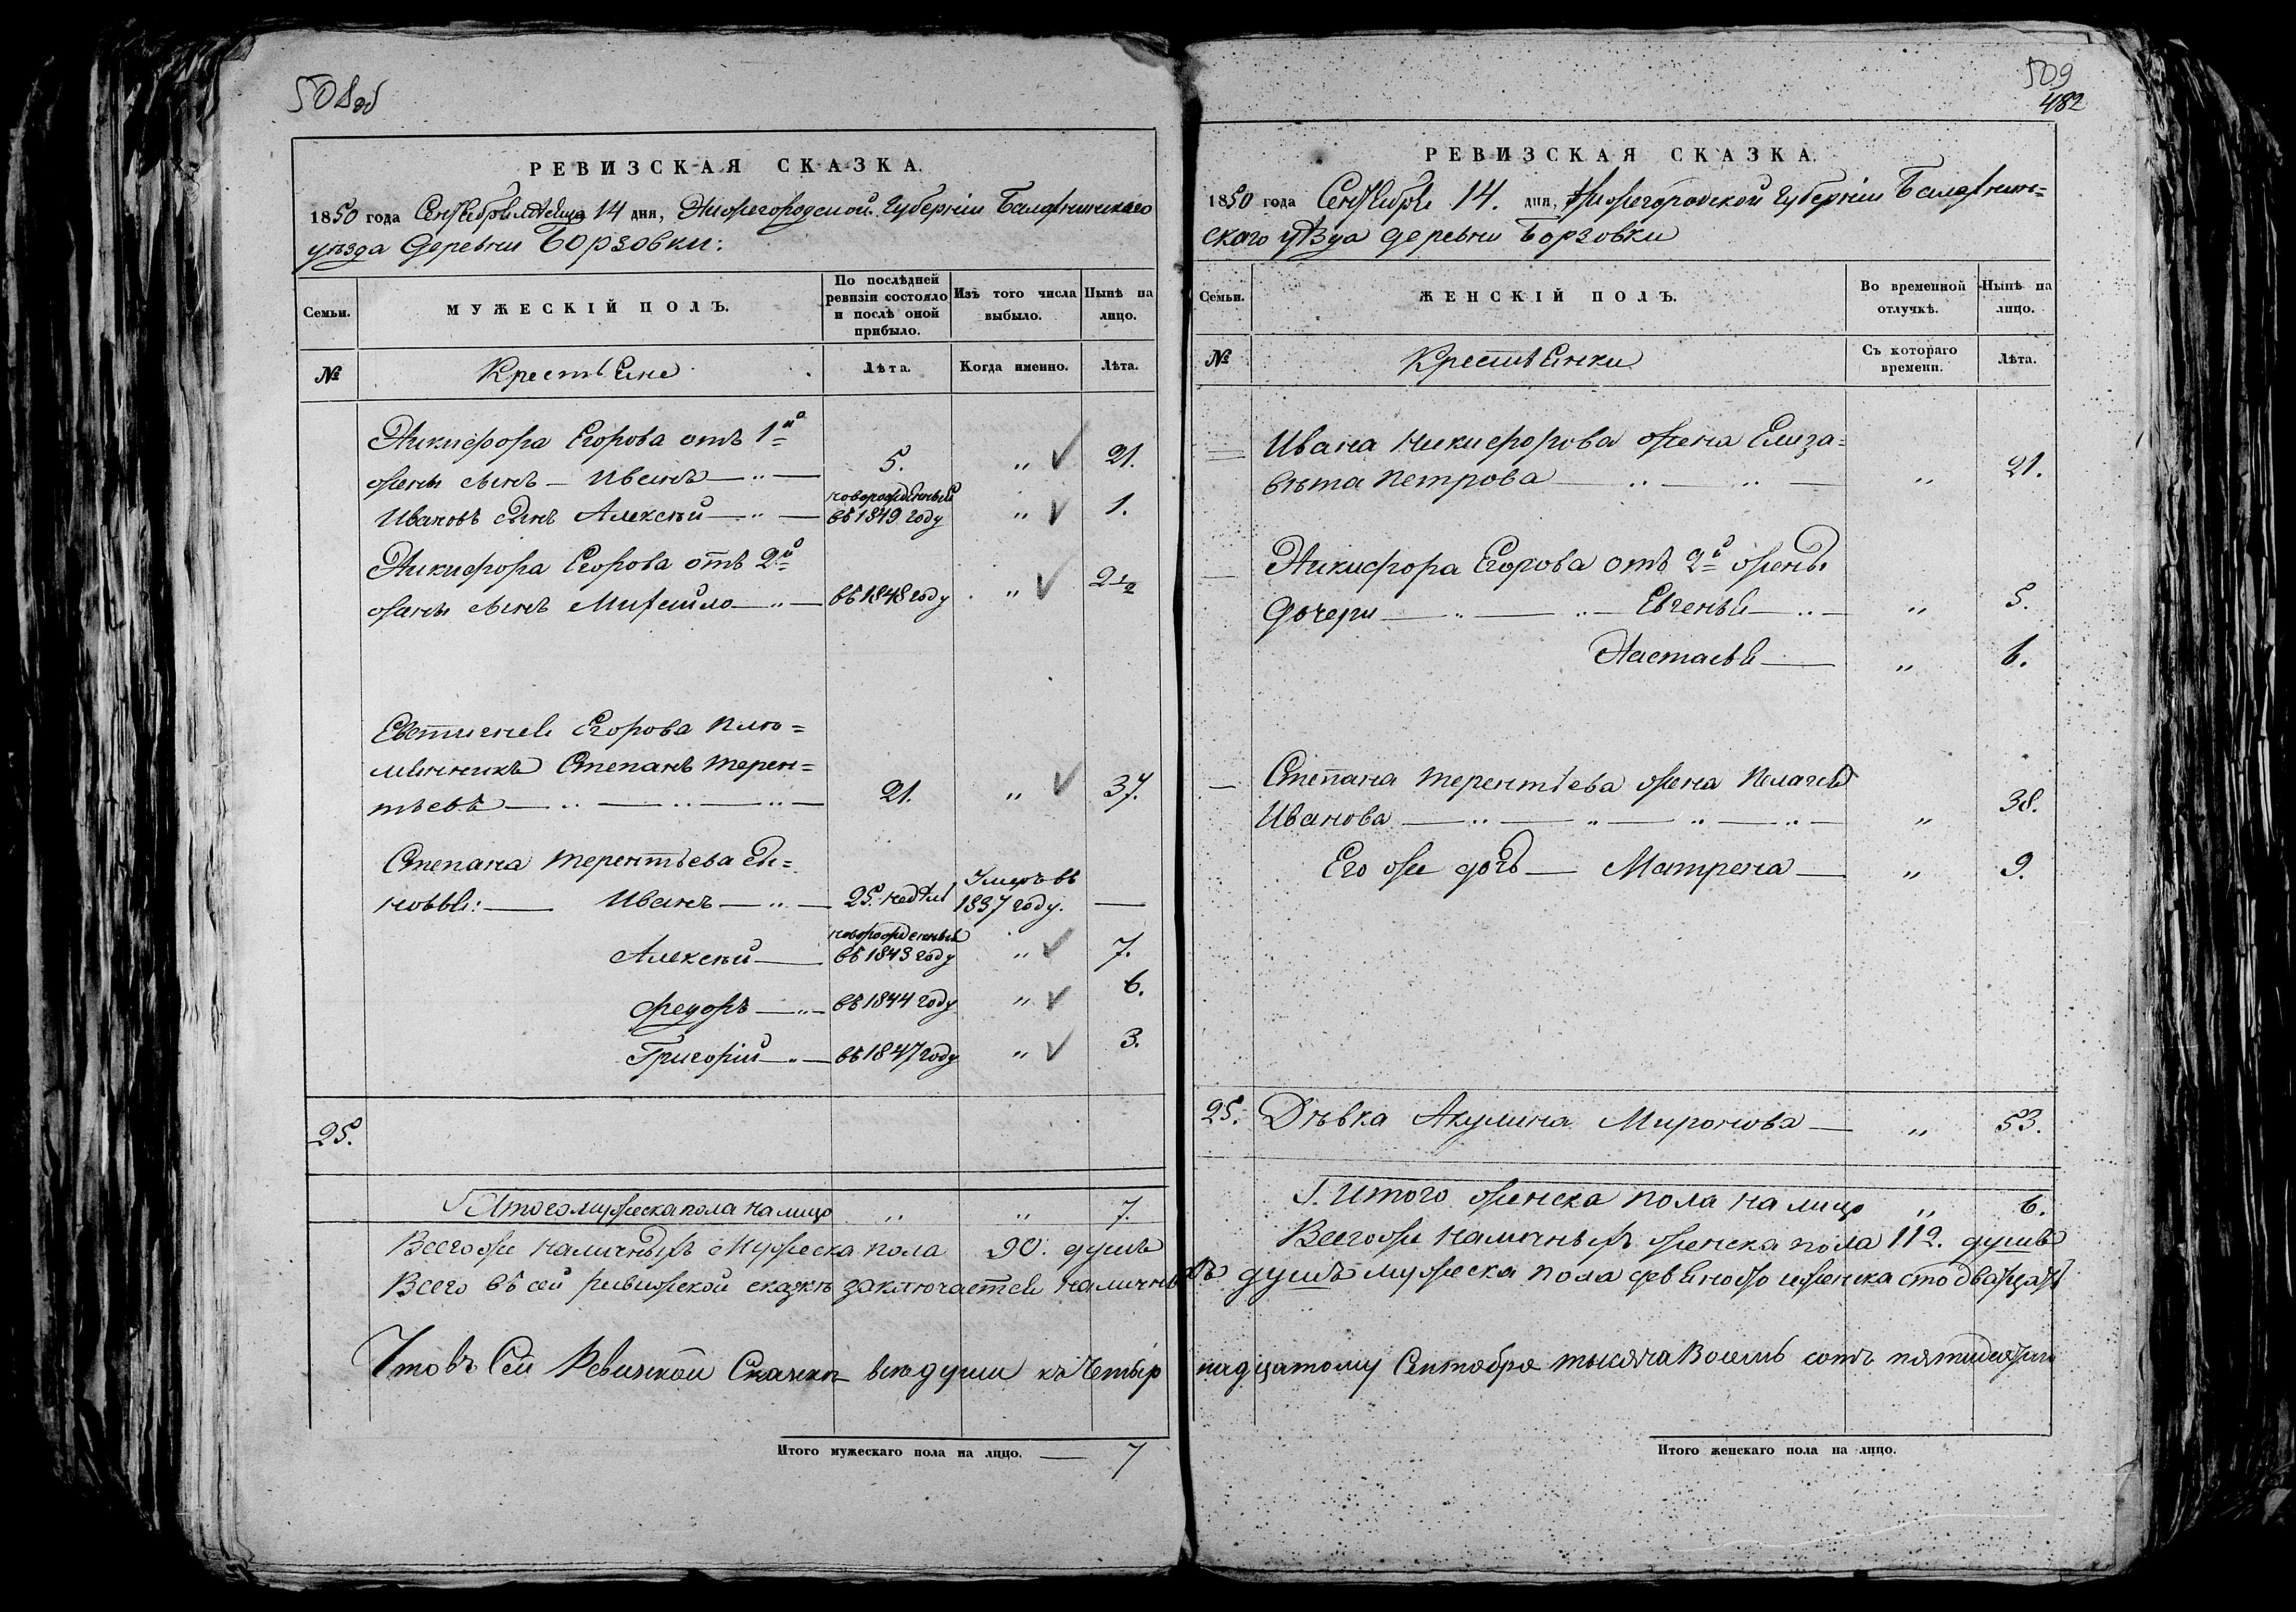 508об
РЕВИЗСКАЯ СКАЗКА.
1850 года Сентября месяца 14 дня, Нижегородской Губернiи Балахнинскаго
уѣзда Деревни Борзовки:
Семьи.
МУЖЕСКІЙ ПОЛЪ.
По послѣдней
ревизіи состояло
и послѣ оной
прибыло.
Изъ того числа
выбыло.
Нынѣ на
лицо.
№
Крестьяне
Лѣта.
Когда именно.
Лѣта.
Никифора Егорова отъ 1й
жены сынъ — Иванъ — 5. „ 21.
Ивановъ сынъ Алексѣй — новорожденный
въ 1849 году „ 1.
Никифора Егорова отъ 2й
жены сынъ Михайло — въ 1848 году „ 2 1/2
Евстигнея Егорова плѣ=
мянникъ Степанъ Терен=
тьевъ — 21. „ 37.
Степана Терентьева сы=
новья: — Иванъ — 25. недѣль Умеръ въ
1837 году. —
Алексѣй — новорожденный
въ 1843 году „ 7.
Федоръ — въ 1844 году „ 6.
Григорій — въ 1847 году „ 3.
25.
Итого мужеска пола на лицо „ „ 7.
Всего же наличныхъ мужеска пола 90. душъ
Всего въ сей ревижской сказкѣ заключается наличны
Что въ Сей Ревизкой Сказкѣ все души къ Четыр
Итого мужескаго пола на лицо. — 7
509
482
РЕВИЗСКАЯ СКАЗКА.
1850 года Сентября 14. дня, Нижегородской Губерніи Балахнин=
скаго уѣзда деревни Борзовки
Семьи.
ЖЕНСКІЙ ПОЛЪ.
Во временной
отлучкѣ.
Нынѣ на
лицо.
№
Крестьянки
Съ котораго
времени.
Лѣта.
Ивана Никифорова жена Елиза=
вѣта Петрова — „ 21.
Никифора Егорова отъ 2й жены
дочери — Евгенья — „ 5.
Настасья — „ 6.
Степана Терентьева жена Пелагея
Иванова — „ 38.
Его же дочь — Матрена — „ 9.
25. Дѣвка Акулина Миронова — „ 53.
Итого женска пола на лицо „ 6.
Всего же наличныхъ женска пола 112. душъ
хъ душъ мужеска пола девяносто женска сто двѣнадцать
надцатому Сентября тысяча Восемь сотъ пятидесятаго
Итого женскаго пола на лицо.